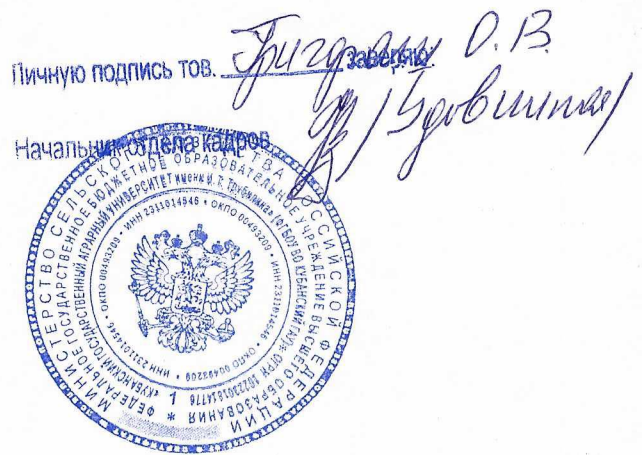 Личную подпись тов. Григораш О.В. заверяю:
Начальник отдела кадров /Удовицкая/
МИНИСТЕРСТВО СЕЛЬСКОГО ХОЗЯЙСТВА РОССИЙСКОЙ ФЕДЕРАЦИИ
* ФЕДЕРАЛЬНОЕ ГОСУДАРСТВЕННОЕ БЮДЖЕТНОЕ ОБРАЗОВАТЕЛЬНОЕ УЧРЕЖДЕНИЕ ВЫСШЕГО ОБРАЗОВАНИЯ
«КУБАНСКИЙ ГОСУДАРСТВЕННЫЙ АГРАРНЫЙ УНИВЕРСИТЕТ имени И.Т. Трубилина» (ФГБОУ ВО КУБАНСКИЙ ГАУ) * ОГРН
ИНН 2311014546 • ОКПО 00493209 • ИНН 2311014546 • ОКПО 00493209 • ИНН 2311014546 • ОКПО 00493209 •
1